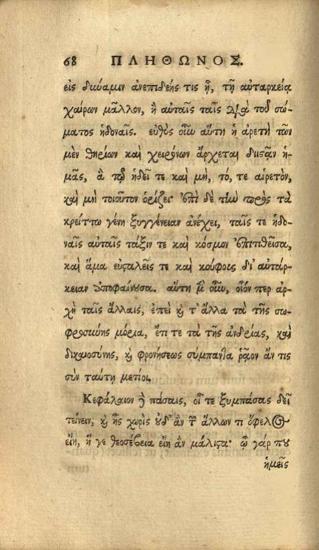 68 ΠΛΗΘΩΝΟΣ.
εἰς δύναμιν ἀνεπιδεής τις ᾖ, τῇ αὐταρκείᾳ
χαίρων μᾶλλον, ἢ αὐταῖς ταῖς διὰ τοῦ σώ-
ματος ἡδοναῖς. εὐθὺς οὖν αὕτη ἡ ἀρετὴ τῶν
μὲν θηρίων καὶ χειρόνων ἄρχεται διιστᾶν ἡ-
μᾶς, ἃ τῷ ἡδεῖ τε καὶ μὴ, τό, τε αἱρετὸν,
καὶ μὴ τοιοῦτον ὁρίζει· ἐπὶ δὲ τὴν πρὸς τὰ
κρείττω γένη ξυγγένειαν ἀνέχει, ταῖς τε ἡδο-
ναῖς αὐταῖς τάξιν τε καὶ κόσμον ἐπιτιθεῖσα,
καὶ ἅμα εὐσταλεῖς τε καὶ κούφους δι' αὐτάρ-
κειαν ἀποφαίνουσα. αὕτη μὲν οὖν, οἷον περ ἀρ-
χὴ ταῖς ἄλλαις, ἐπεὶ καὶ τ' ἄλλα τὰ τῆς σω-
φροσύνης μόρια, ἔπι τε τὰ τῆς ἀνδρίας, καὶ
δικαιοσύνης, καὶ φρονήσεως σύμπαντα ῥᾷον ἄν τις
σὺν ταύτῃ μετίοι.
Κεφάλαιον δὲ πάσαις, οἷ τε ξυμπάσας δεῖ
τείνειν, καὶ ἧς χωρὶς οὐδ' ἂν τῶν ἄλλων τι ὄφελος
εἴη, ἥ γε θεοσέβεια εἴη ἂν μάλιστα· ᾧ γάρ που
ἡμεῖς